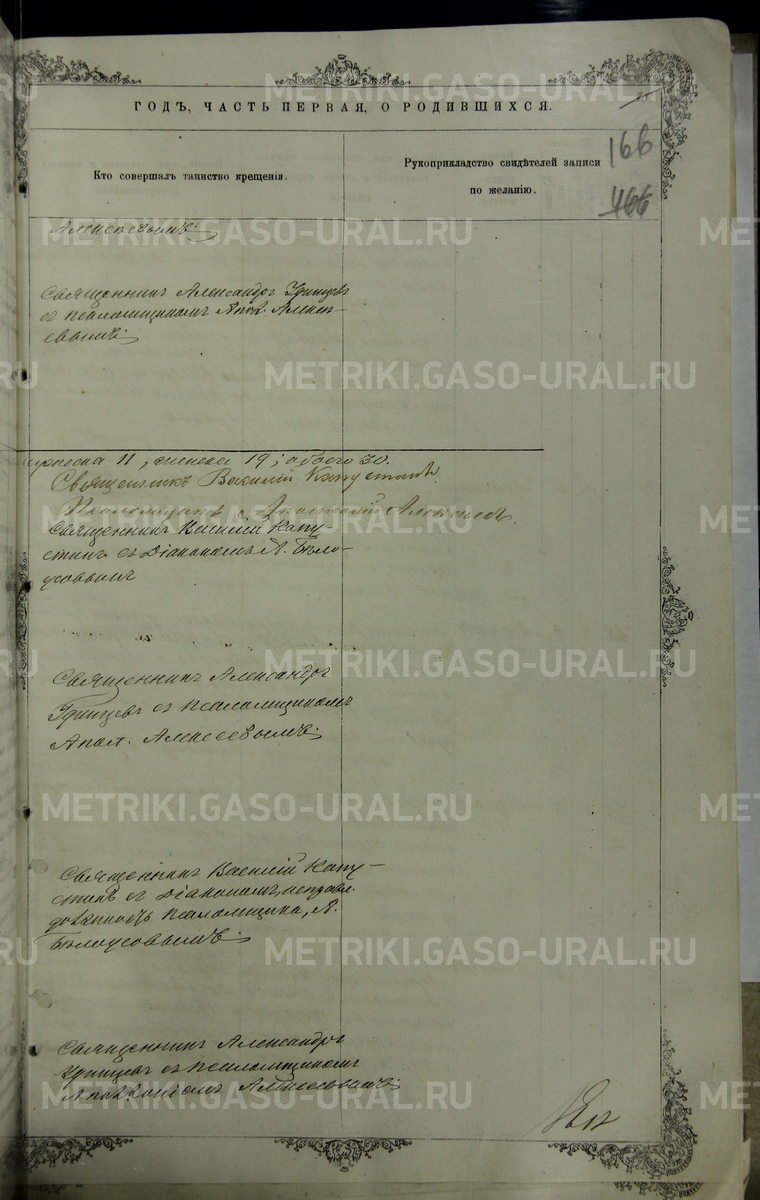 ГОДЪ, ЧАСТЬ ПЕРВАЯ, О РОДИВШИХСЯ.
166
466
Кто совершалъ таинство крещенія.
Рукоприкладство свидѣтелей записи
по желанію.
METRIKI.GASO-URAL.RU
Алексѣевымъ.
Священникъ Александръ Удинцевъ
съ псаломщикомъ Апол. Алексѣ-
евымъ.
мужеска 11, женска 19; обоего 30.
Священникъ Василій Капустинъ
Псаломщикъ Алексѣевъ.
Священникъ Василій Капу-
стинъ съ Діакономъ А. Бѣло-
усовымъ
Священникъ Александръ
Удинцевъ съ псаломщикомъ
Апол. Алексѣевымъ.
Священникъ Василій Капу-
стинъ съ Діакономъ, исправл.
должность псаломщика, А.
Бѣлоусовымъ.
Священникъ Александръ
Удинцевъ съ псаломщикомъ
Аполлоніемъ Алексѣевымъ